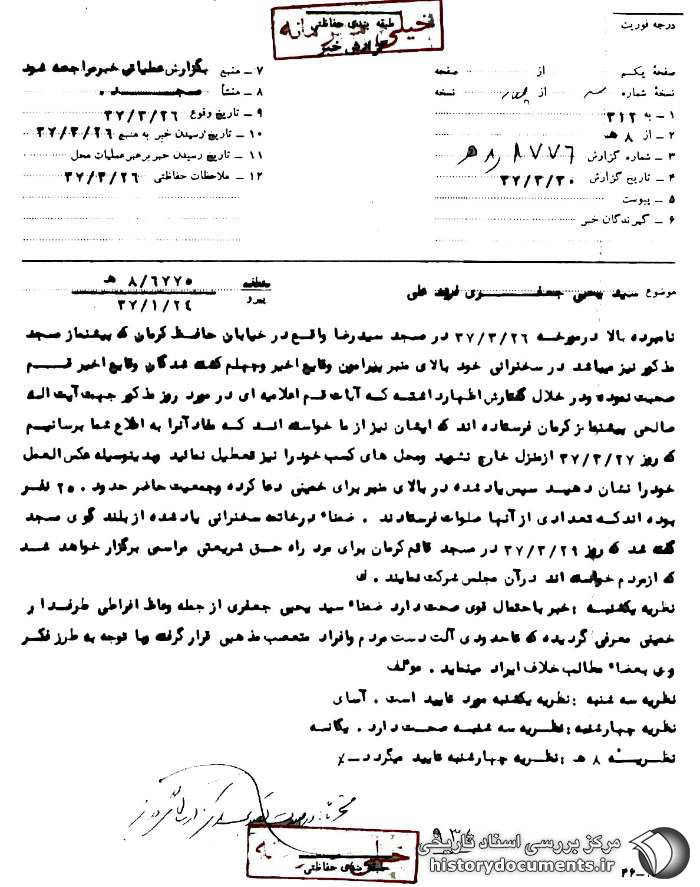 درجه فوریت
طبقه بندی حفاظتی
خیلی محرمانه
گزارش خبر
صفحهٔ یکم از صفحه
نسخهٔ شماره سه از چهار نسخه
۱ – به ۳۱۲
۲ – از ۸ هـ
۳ – شماره گزارش ۸۷۷۶ / ۸ هـ
۴ – تاریخ گزارش ۳۷/۳/۳۰
۵ – پیوست
۶ – گیرندگان خبر
۷ – منبع بگزارش عملیاتی خبر مراجعه شود
۸ – منشأ مسجد .
۹ – تاریخ وقوع ۳۷/۳/۲۶
۱۰ – تاریخ رسیدن خبر به منبع ۳۷/۳/۲۶
۱۱ – تاریخ رسیدن خبر برهبر عملیات محل
۱۲ – ملاحظات حفاظتی ۳۷/۳/۲۶
موضوع سید یحیی جعفری فرزند علی
پیرو ۸/۶۷۷۵ هـ
۳۷/۱/۲۴
نامبرده بالا درمورخه ۳۷/۳/۲۶ در مسجد سیدرضا واقع در خیابان حافظ کرمان که پیشنماز مسجد
مذکور نیز میباشد در سخنرانی خود بالای منبر پیرامون وقایع اخیر وچهلم کشته شدگان وقایع اخیر قم
صحبت نموده ودر خلال گفتارش اظهارداشته که آیات قم اعلامیه ای در مورد روز مذکور جهت آیت اله
صالحی پیشنماز کرمان فرستاده اند که ایشان نیز از ما خواسته اند که مفاد آنرا به اطلاع شما برسانیم
که روز ۳۷/۳/۲۷ ازمنزل خارج نشوید ومحل های کسب خودرا نیز تعطیل نمائید وبدینوسیله عکس العمل
خودرا نشان دهید سپس یاد شده در بالای منبر برای خمینی دعا کرده وجمعیت حاضر حدود . ۲۵ نفر
بوده اندکه تعدادی از آنها صلوات فرستادند . ضمناً درخاتمه سخنرانی یادشده از بلند گوی مسجد
گفته شد که روز ۳۷/۳/۲۹ در مسجد قائم کرمان برای مرد راه حق شریعتی مراسمی برگزار خواهد شد
که ازمردم خواسته اند درآن مجلس شرکت نمایند .
نظریه یکشنبه : خبر باحتمال قوی صحت دارد ضمناً سید یحیی جعفری از جمله وعاظ افراطی طرفدار
خمینی معرفی گردیده که تاحدودی آلت دست مردم وافراد متعصب مذهبی قرار گرفته وبا توجه به طرز فکر
وی بعضاً مطالب خلاف ایراد مینماید . موثق
نظریه سه شنبه : نظریه یکشنبه مورد تایید است . آسای
نظریه چهارشنبه : نظریه سه شنبه صحت دارد . یگانه
نظریه ۸ هـ : نظریه چهارشنبه تایید میگردد -٪
طبقه بندی حفاظتی
مرکز بررسی اسناد تاریخی
historydocuments.ir